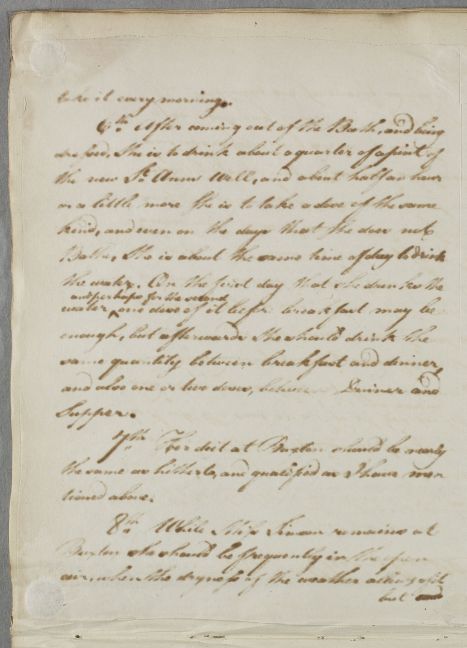 take it every morning.
6th. After coming out of the Bath, and being
dressed, She is to drink about a quarter of a pint of
the new St. Anns Well, and about half an hour
or a little more She is to take a dose of the same
kind, and even on the days that She does not
Bathe, She is about the same time of day to drink
the water. On the first day that she drinks the
and perhaps for the second
water, one dose of it before breakfast may be
enough, but afterwards She should drink the
same quantity between breakfast and dinner,
and also one or two doses, between Dinner and
Supper.
7th. Her diet at Buxton should be nearly
the same as hitherto, and qualified as I have men
tioned above.
8th. While Miss remains at
Buxton she should be frequently in the open
air, when the dryness of the weather admits of it
but